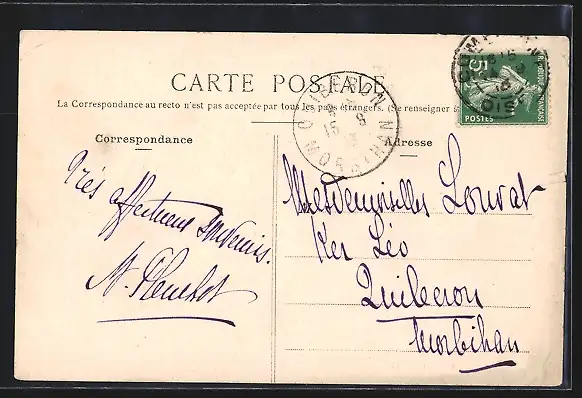 CARTE POSTALE
La Correspondance au recto n'est pas acceptée par tous les pays étrangers. (Se renseigner à
Correspondance
Adresse
QUIBERON
15 8
MORBIHAN
5
POSTES
OISE
Très affectueux souvenirs.
Mesdemoiselles Louvat
Ker Léo
Quiberon
Morbihan